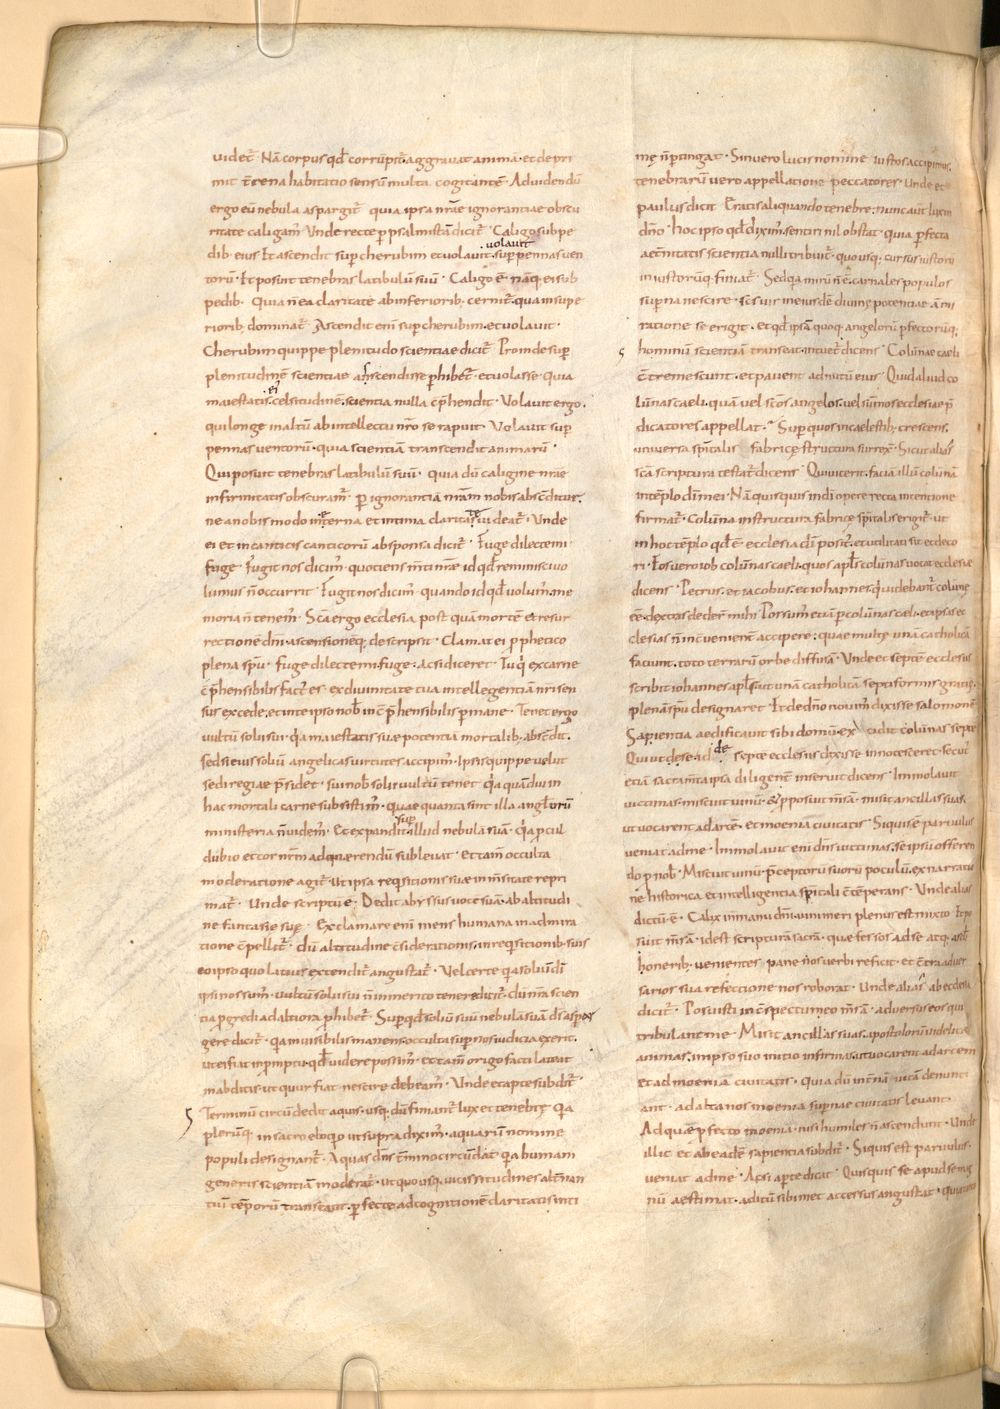 uidet᷑· Nā corpus qđ corrūpit᷑· aggrauat anima· et depri
mit t̄rena habitatio sensū multa cogitantē· Ad uidendū
ergo eū nebula aspargit᷑ quia ipsa nr̄ae ignorantiae obscu
ritate caligam᷒ Unde recte ꝑ psalmistā dicit᷑· Caligo sub pe
dib· eius Et ascendit suꝑ cherubim et uolauit· uolauit suꝑ pennas uen
torū· Et posuit tenebras latibulū suū· Caligo ē· nāq· ei sub
pedib· Quia n̄ ea claritate ab inferiorib· cernit᷑· qua in supe
riorib; dominat᷑· Ascendit eni suꝑ cherubim· et uolauit·
Cherubim quippe plenitudo scientiae dicit᷑· Proinde suꝑ
plenitudinē scientiae ascendisse ꝑhibet᷑· et uolasse· quia
maiestatis ei celsitudinē· scientia nulla c̄p̄hendit· Uolauit ergo·
qui longe in altū ab intellectu nr̄o se rapuit· Uolauit suꝑ
pennas uentorū· quia scientiā transcendit animarū·
Qui posuit tenebras latibulū suū· quia dū caligine nr̄ae
infirmitatis obscuram᷑· ꝑ ignorantiā nr̄am nobis abscdit᷑ur·
ne a nobis modo in et̄erna et intima claritate uideat᷑· Unde
ei et in canticis canticorū ab sponsa dicit᷑· Fuge dilecte mi
fuge· Fugit nos dicim᷒· quotiens m̄ti nr̄ae id qđ reminisci uo
lumus n̄ occurrit· Fugit nos dicim᷒· quando id qđ uolum᷒ me
moria n̄ tenem᷒· Sc̄a ergo ecclesia post quā mortē et resur
rectione dn̄i· ascensioneq; descripsit· Clamat ei ꝓphetico
plena sp̄u· fuge dilecte mi fuge· ac si diceret· Tu qͥ ex carne
c̄p̄hensibilis fact᷒ es· ex diuinitate tua intellegentiā nr̄i sen
sus excede· et in te ipso nob᷒ inc̄p̄hensibilis ꝑmane· Tenet ergo
uultū solii sui· qͥa maiestatis suae potentia mortalib· abscdit᷑·
Sed si eius soliū angelicas uirtutes accipim᷒· Ipsi quippe uelut
sedi regiae p̄sidet sui nob᷒ solii uultū tenet qͥa quādiu in
hac mortali carne subsistim᷒· quae quanta sint illa anglorū
ministeria n̄ uidem᷒· Et expandit suꝑ illud nebulā suā· qͥa ꝓcul
dubio et cor nr̄m ad quaerendū subleuat· et tam̄ occulta
moderatione agit᷑· Ut ipsa reqͥsitionis suae inm̄sitate repri
mat᷑· Unde scriptū ē· Dedit abyssus uocē suā· ab altitudi
ne fantasię suę· Exclamare eni mens humana in admira
tione c̄pellit᷑· dū altitudine c̄siderationis· in reqͥsitionib· suis
eo ipso quo latius extendit᷑ angustat᷑· Uel certe qͥa solū dī
ipsi nos sum᷒· uultū solii sui n̄ inmerito tenere dicit᷑· dū nr̄a scien
tia ꝓgredi ad altiora ꝓhibet᷑· Suꝑ qđ soliū suū nebulā suā d̄s asper
gere dicit᷑· qͥa inuisibilis manens· occulta suꝑ nos iudicia exerit·
ut ei fiat inꝓmptu· qđ uidere possim᷒· et tam̄ origo facti lateat
in abditis· ut qur fiat nescire debeam᷒· Unde et apte subdit᷑·
Terminū circūdedit aquis· usq; dū finiant᷑ lux et tenebrę Qͥa
plerūq; in sacro eloqͥo ut supra dixim᷒· aquarū nomine
populi designant᷑· Aquas dn̄s t̄mino circūdat· qͥa humani
generis scientiā moderat᷑· ut quo usq; uicissitudines alt̄nan
tiū tēporū transeant· ꝑfecte ad cognitionē claritatis inti
mę n̄ ꝑtingat· Sin uero lucis nomine iustos accipimus·
tenebrarū uero appellatione peccatores· Unde et
paulus dicit· Eratis aliquando tenebre; nunc autē lux in
dn̄o· hoc ipso qđ dixim᷒· sentiri nil obstat· quia ꝑfecta
aet̄nitatis scientia nulli tribuit᷑· quo usq; cursus iustorū
iniustorūq; finiat᷑· Sed qͥa mirū n̄ ē· carnales populos
superna nescire· sc̄s uir in eiusdē diuinę potentiae ammi
ratione se erigit· et qđ ipsā quoq; angelorū ꝑfectorūq;
hominū scientiā transeat· intuet᷑ dicens· Colūnae caeli
c̄tremescunt· et pauent ad nutū eius· Quid aliud co
lūnas caeli· quā uel sc̄os angelos· uel sūmos ecclesiae p̄
dicatores appellat· Suꝑ quos in caelestib; crescens·
uniuersa spiritalis fabricę structura surrex᷒· Sicut alias
sc̄a scriptura testat᷑ dicens· Qui uicerit· faciā illū colūnā
in tēplo dī mei· Nā quisquis in dī opere recta intentione
firmat᷑· Colūna in structura fabricę sp̄italis erigit᷑· ut
in hoc tēplo qđ ē ecclesia dī posit᷒· et utilitati sit et deco
ri· Eos uero iob colūnas caeli· quos apls̄ colūnas uocat ecclesiae
dicens· Petrus· et iacobus· et iohannes· qͥ uidebant᷑ colūnę
ēē· dextras deder̄ mihi· Possum᷒ etiā ꝑ colūnas caeli· et ipsas ec
clesias n̄ incuenient᷑ accipere; quae multę unā catholicā
faciunt· toto terrarū orbe diffusā· Unde et septē ecclesiis
scribit iohannes apls̄· ut unā catholicā septiformis gratię·
plenā sp̄u designaret· Et de dn̄o nouim᷒ dixisse salomonē
Sapientia aedificauit sibi domū· excidit colūnas septē·
Qui ut de se· id septē ecclesiis dixisse innotesceret· secut᷒
etiā sacram̄ta ipsa diligent̄ inseruit dicens· Immolauit
uictimas· miscuit uinū· et ꝓposuit m̄sā· misit ancillas suas·
ut uocarent ad arcē· et moenia ciuitatis· Si quis ē paruulus
ueniat ad me· Immolauit eni dn̄s uictimas· se ipsū offeren
do ꝓ nob᷒· Miscuit uinū· p̄ceptorū suorū poculū· ex narratio
nē historica et intelligentia spiritali c̄tēperans· Unde alias
dictū ē· Calix in manu dn̄i· uini meri plenus est mixto· Et po
suit m̄sā· id est scripturā sacrā· quae fessos ad se atq; ab
honerib; uenientes pane nos uerbi reficit· et c̄tra aduer
sarios sua refectione nos roborat· Unde alias ab ecclesia
dicit᷑· Posuisti in c̄spectu meo m̄sā· aduersus eos qui
tribulant me· Misit ancillas suas· apostolorū uidelicet
animas· in ipso suo initio infirmas· ut uocarent ad arcem
et ad moenia ciuitatis· Quia dū int̄nā uitā denunti
ant· ad alta nos moenia supernae ciuitatis leuant·
Ad quae ꝓfecto moenia· nisi humiles n̄ ascendunt· Unde
illic et ab eadē sapientia subdit᷑· Siquis est paruulus·
ueniat ad me· Ac si aꝑte dicat· Quisquis se apud semet
nū aestimat· aditū sibi met accessus angustat·